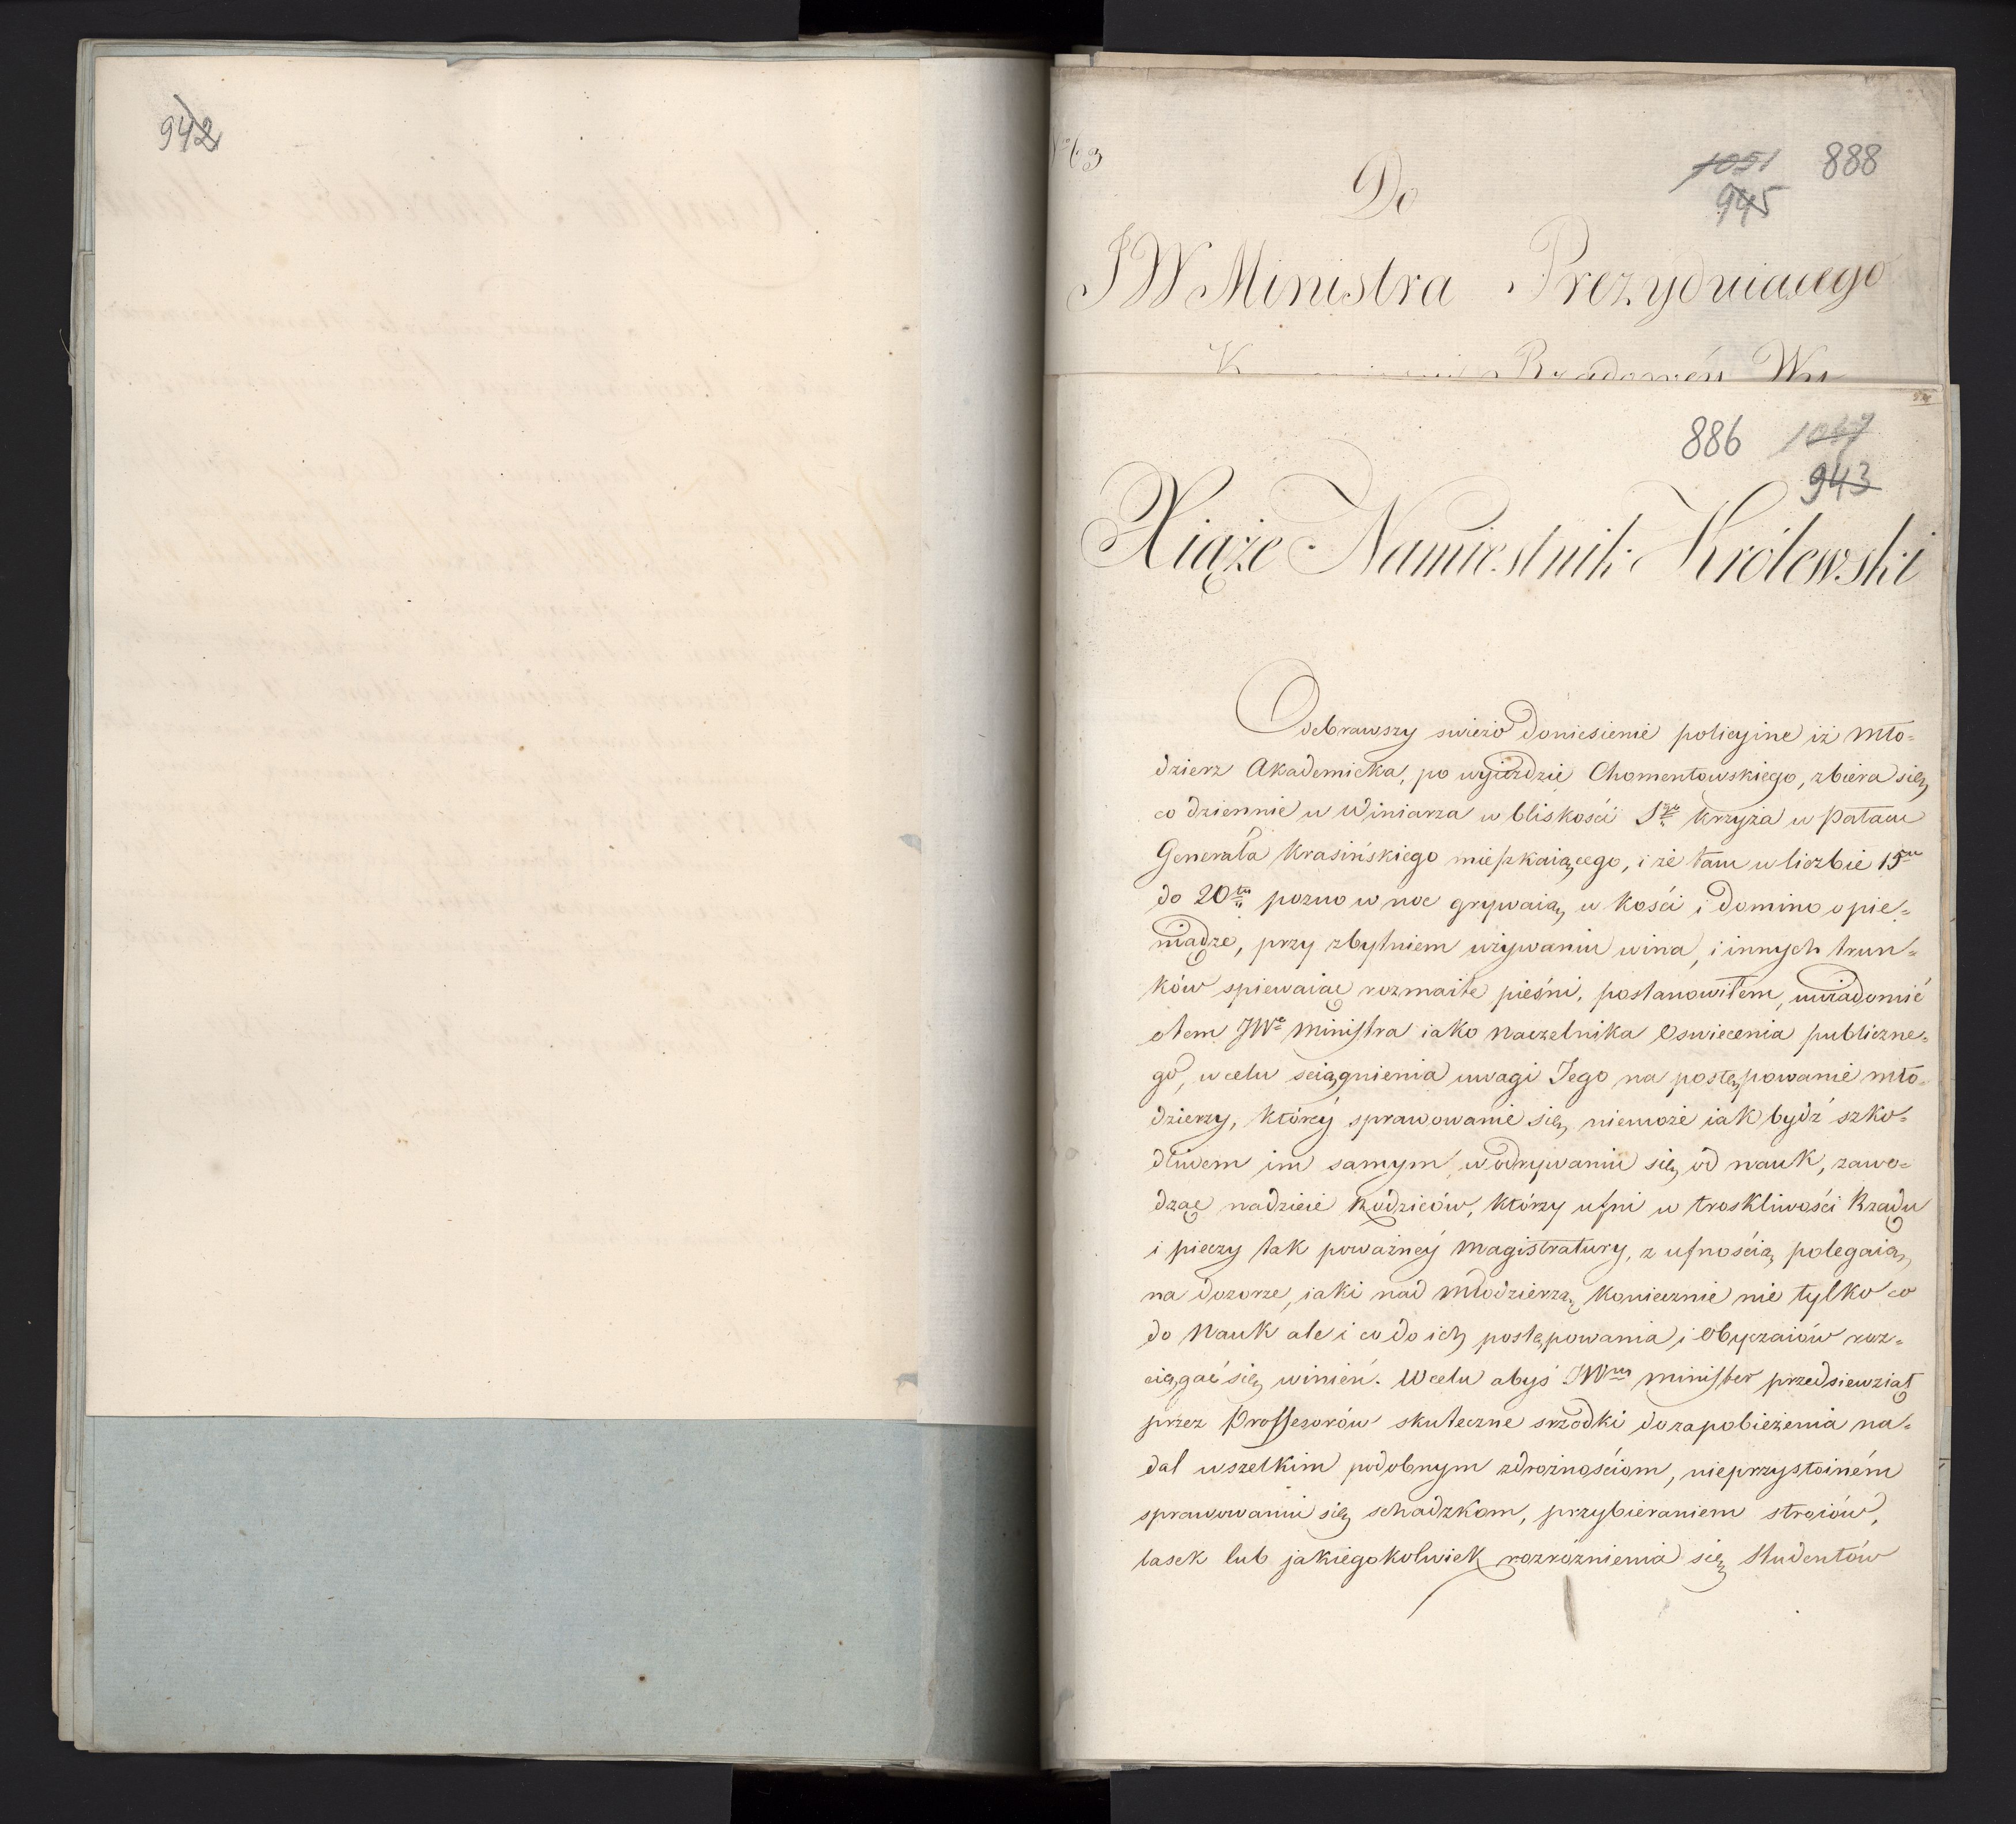 942
No 63
1051 888
945
Do
JW Ministra Prezyduiącego
886 1047
943
Xiąże Namiestnik Królewski
Odebrawszy swieżo doniesienie policyine iż mło=
dzierz Akademicka, po wyjezdzie Chomentowskiego, zbiera się
codziennie u Winiarza w bliskości Sgo Krzyża w Pałacu
Generała Krasińskiego mieszkaiącego, i że tam w liczbie 15tu
do 20tu pozno w noc grywaią w kości i domino o pie=
niądze, przy zbytniem używaniu wina, i innych trun=
ków spiewaiąc rozmaite pieśni, postanowiłem, uwiadomić
otem JWo Ministra iako Naczelnika Oswiecenia publiczne=
go, w celu sciągnienia uwagi Jego na postępowanie mło=
dzierzy, któréy sprawowanie się, niemoże iak bydź szko=
dliwem im samym w odrywaniu się od nauk, zawo=
dząc nadzieie Rodziców, którzy ufni w troskliwości Rządu
i pieczy tak poważnéy Magistratury, z ufnością polegaią,
na dozorze, iaki nad Młodzierzą koniecznie nie tylko co
do Nauk ale i co do ich postępowania i Obyczaiów roz=
ciągać się winien. W celu abyś JWny Minister przedsiewziął
przez Professorów skuteczne srzodki do zapobieżenia na=
dal wszelkim podobnym zdrożnościom, nieprzystoiném
sprawowaniu się schadzkom, przybieraniem stroiów,
lasek lub jakiegokolwiek rozróznienia się Studentów